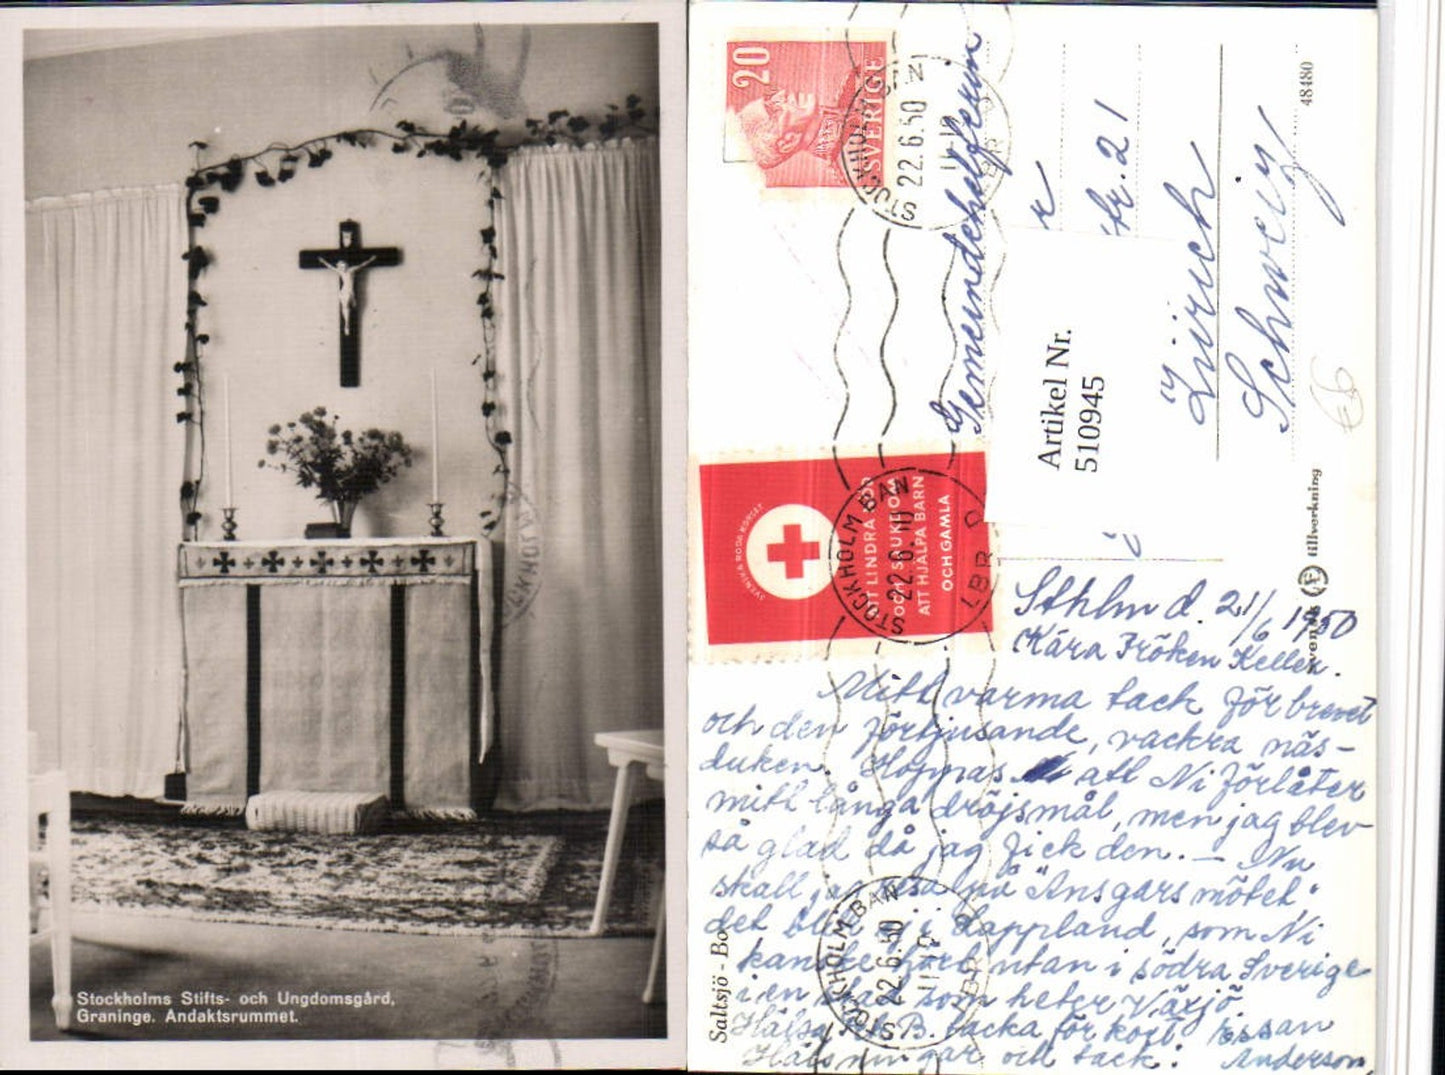 Stockholms Stifts- och Ungdomsgård,
Graninge. Andaktsrummet.
20
SVERIGE
STOCKHOLM BAN
22.6.50
LBR
Gemeindehelferin
Str. 21
Zürich
Schweiz
48480
Artikel Nr.
510945
SVENSKA RÖDA KORSET
ATT LINDRA NÖD
OCH SJUKDOM
ATT HJÄLPA BARN
OCH GAMLA
STOCKHOLM BAN
22.6.
LBR
svensk tillverkning
Saltsjö - Bo
Sthlm d. 21/6 1950
Kära Fröken Keller.
Mitt varma tack för brevet
och den förtjusande, vackra näs-
duken. Hoppas att Ni förlåter
mitt långa dröjsmål, men jag blev
så glad då jag fick den. – Nu
skall jag resa på "Ansgars mötet"
det blir ej i Lappland, som Ni
kanske hört utan i södra Sverige
i en stad som heter Växjö.
Hälsa B. tacka för kort
Hälsningar och tack. Anderson
STOCKHOLM BAN
22.6.50